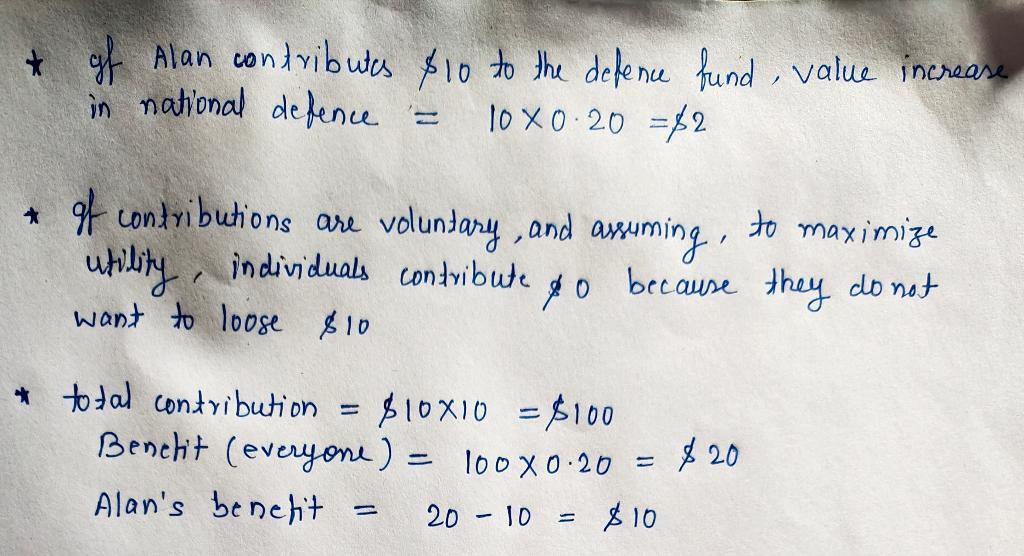 * If Alan contributes $10 to the defence fund, value increase
in national defence = 10 X 0.20 = $2
* If contributions are voluntary, and assuming, to maximize
utility, individuals contribute $0 because they do not
want to loose $10
* total contribution = $10X10 = $100
Benefit (everyone) = 100 X 0.20 = $20
Alan's benefit = 20 - 10 = $10